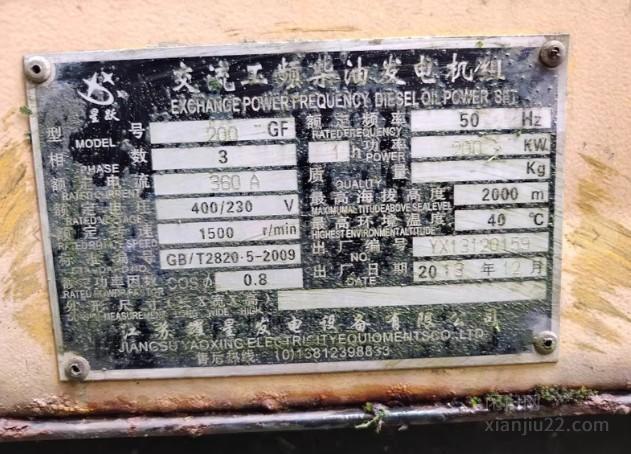 星跃
交流工频柴油发电机组
EXCHANGE POWER FREQUENCY DIESEL OIL POWER SET
型号 200 GF
MODEL
额定频率 50 Hz
RATED FREQUENCY
相数 3
PHASE
1 h功率 200 KW
POWER
额定电流 360 A
RATED CURRENT
质量 Kg
QUALITY
额定电压 400/230 V
最高海拔高度 2000 m
MAXIMUM ALTITUDE ABOVE SEA LEVEL
额定转速 1500 r/min
RATED ROTATE SPEED
最高环境温度 40 ℃
HIGHEST ENVIRONMENTAL TITUDE
标准编号 GB/T2820·5-2009
STANDARD NO.
出厂编号 YX13120159
NO.
额定功率因数 COS 0.8
出厂日期 2013年12月
DATE
外形尺寸(长X宽X高)
江苏耀星发电设备有限公司
JIANGSU YAOXING ELECTRICITY EQUIOMENTS CO.,LTD.
售后热线: (0)13812398833
xianjiu22.com